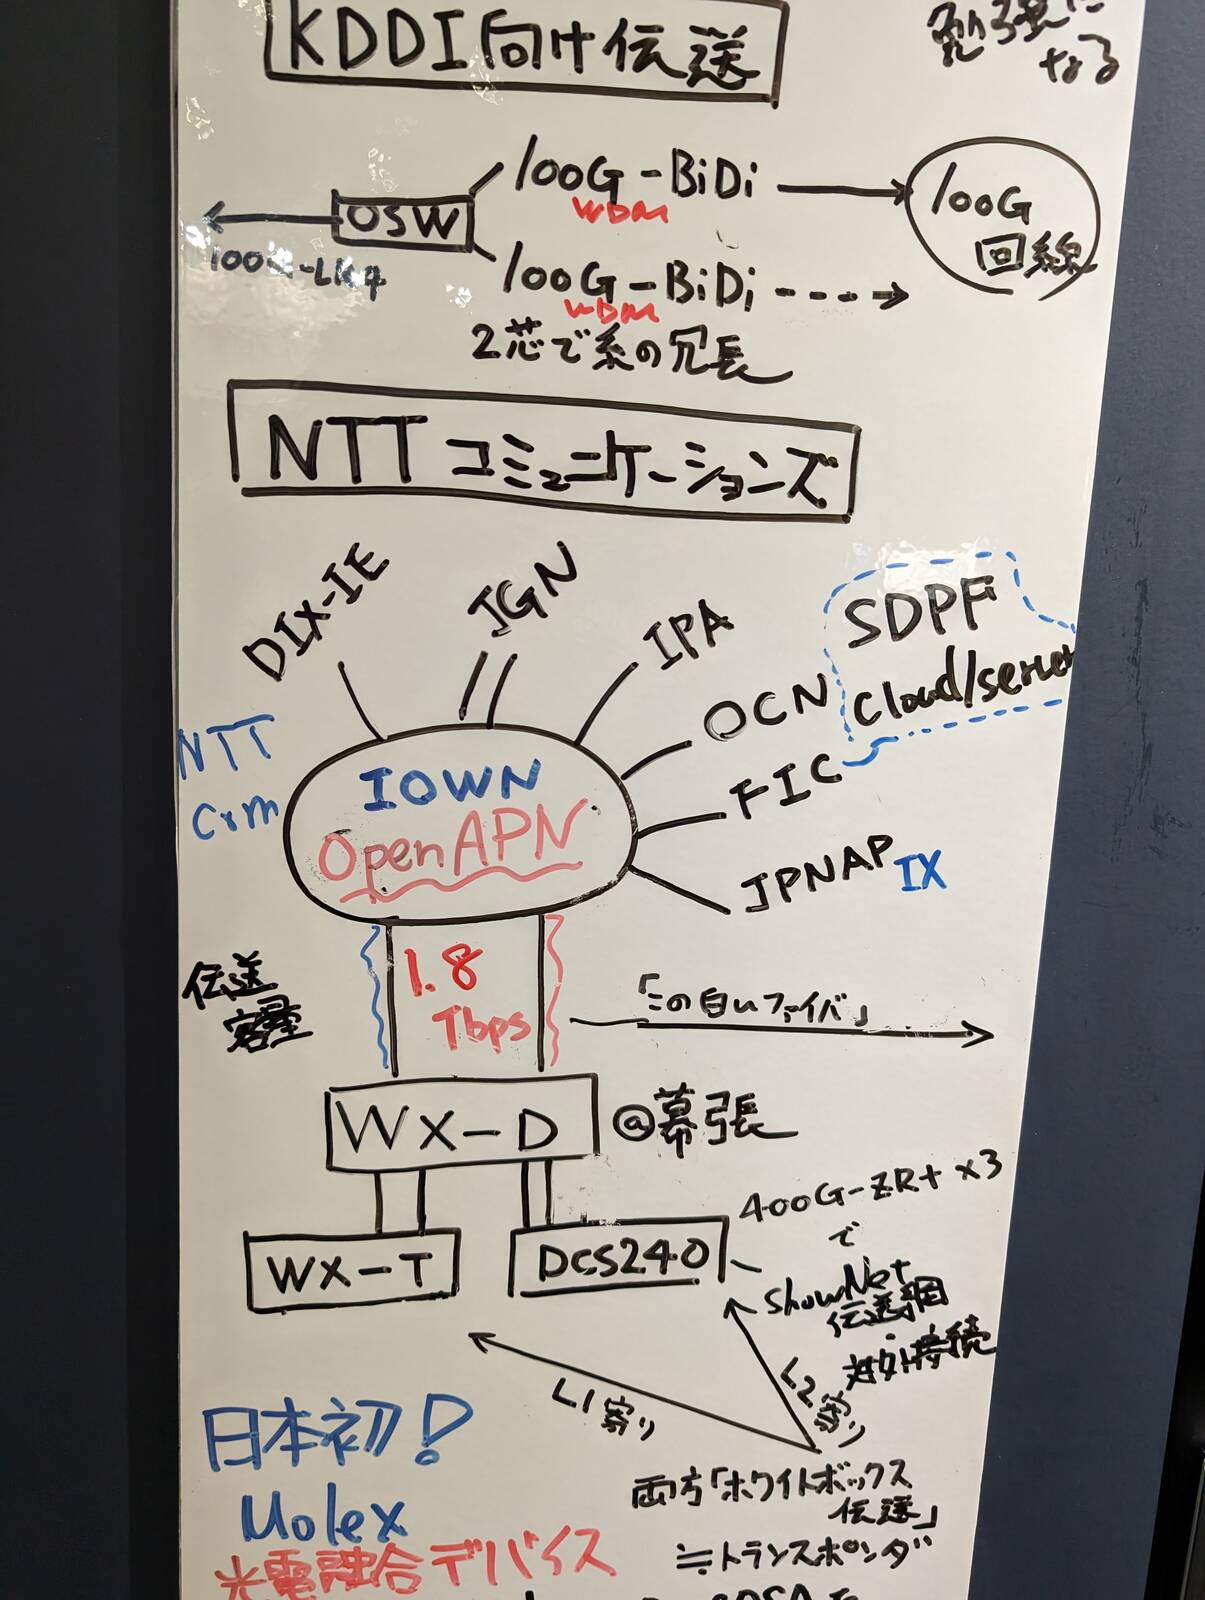 KDDI向け伝送
なる
OSW
100G-BiDi
WDM
100G
回線
100G-LR4
100G-BiDi
WDM
2芯で系の冗長
NTTコミュニケーションズ
DIX-IE
JGN
IPA
OCN
SDPF
Cloud/server
FIC
JPNAP IX
NTT
Com
IOWN
Open APN
伝送
容量
1.8
Tbps
「この白いファイバ」
WX-D
@幕張
WX-T
DCS240
400G-ZR+ x3
で
ShowNet
伝送網
対外接続
L1寄り
L2寄り
両方「ホワイトボックス
伝送」
≒トランスポンダ
日本初!
Molex
光電融合デバイス